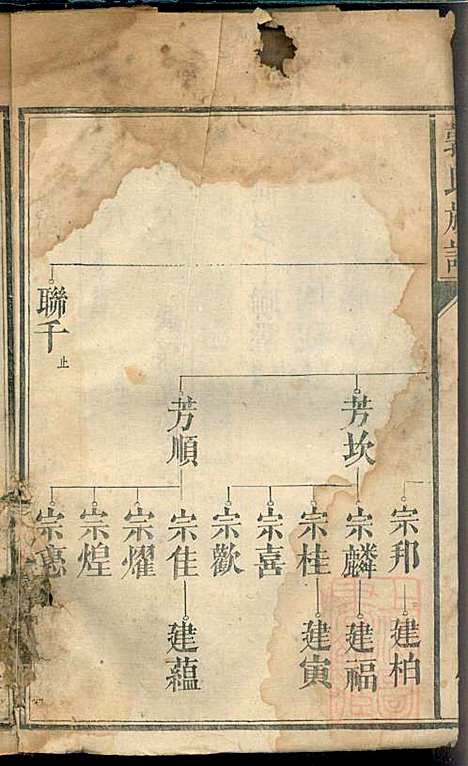 郭氏族譜
聯千
止
芳坎
芳順
宗邦
宗麟
宗桂
宗喜
宗歡
宗佳
宗耀
宗煌
宗憲
建柏
建福
建寅
建蘊